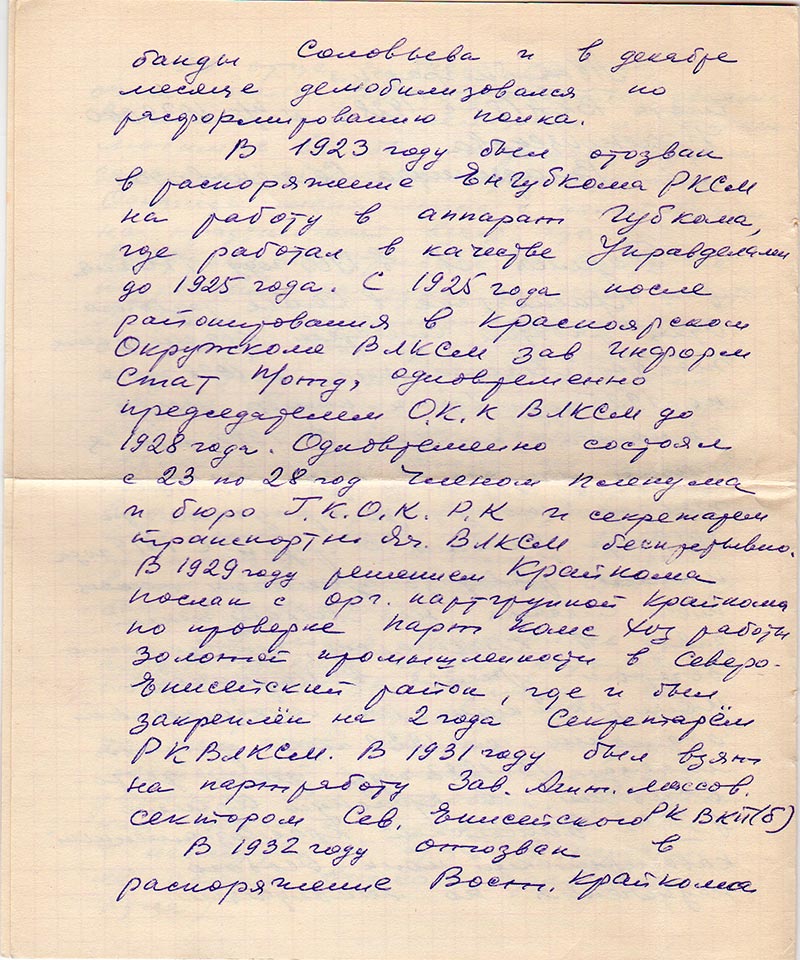 банды Соловьева и в декабре
месяце демобилизовался по
расформированию полка.
В 1923 году был отозван
в распоряжение ЕнГубкома РКСМ
на работу в аппарат Губкома,
где работал в качестве Управделами
до 1925 года. С 1925 года после
районирования в Красноярском
Окружкоме ВЛКСМ зав Информ
Стат П/отд, одновременно
председателем О.К.К ВЛКСМ до
1928 года. Одновременно состоял
с 23 по 28 год Членом пленума
и бюро Г.К.О.К. Р.К и секретарем
транспортн яч. ВЛКСМ беспрерывно.
В 1929 году решением Крайкома
послан с орг. партгруппой Крайкома
по проверке Парт Комс Хоз работы
Золотой промышленности в Северо-
Енисейский район, где и был
закреплён на 2 года Секретарём
РК ВЛКСМ. В 1931 году был взят
на партработу Зав. Агит. массов.
сектором Сев. Енисейского РК ВКП(б)
В 1932 году отозван в
распоряжение Вост. Крайкома